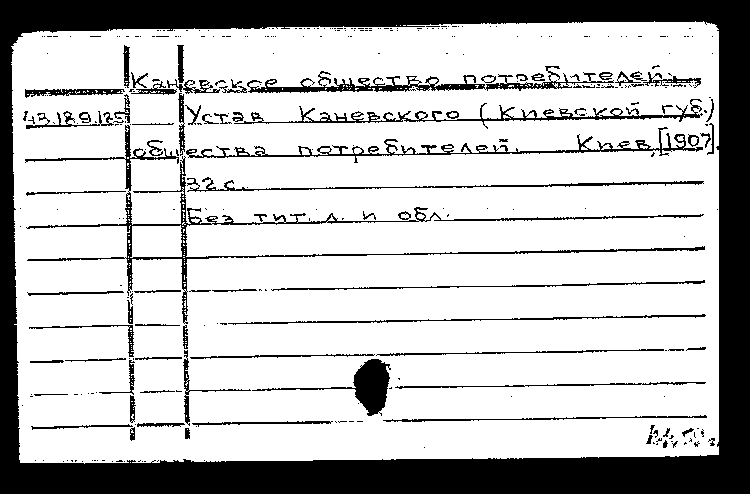 Каневское общество потребителей.
43.189.125 Устав Каневского (Киевской губ.)
общества потребителей. Киев, [1907].
32 с.
Без тит. л. и обл.